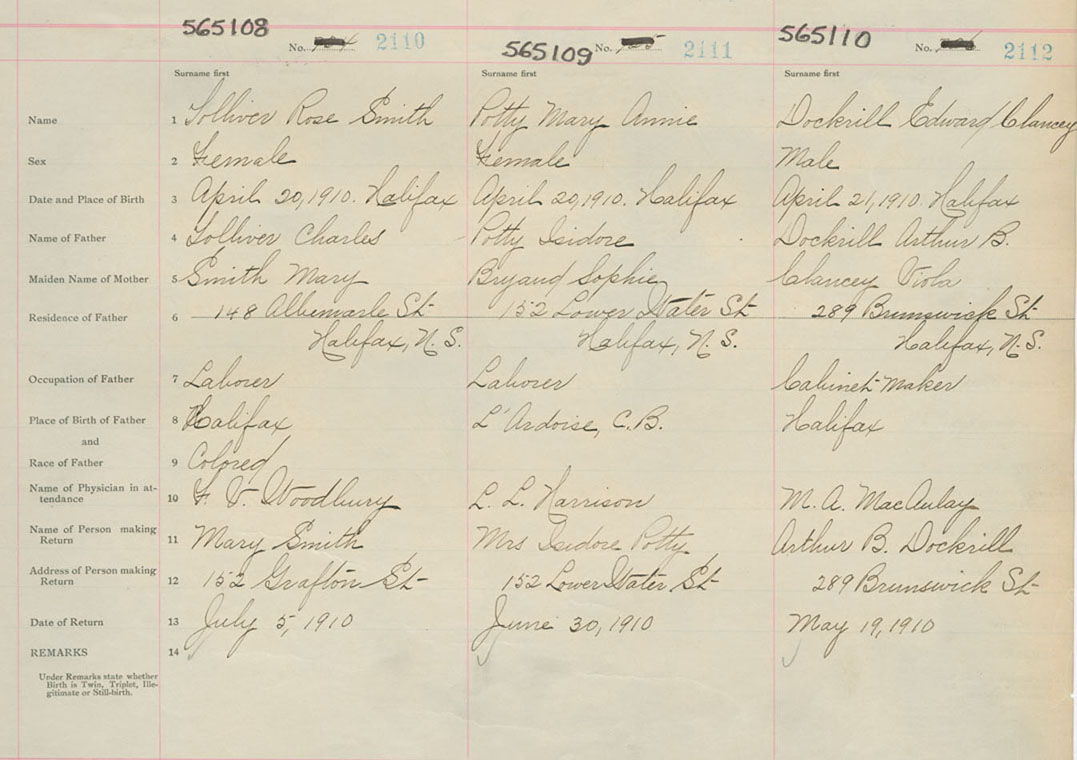 565108 No. 2110 565109 No. 2111 565110 No. 2112
Surname first Surname first Surname first
Name 1 Tolliver Rose Smith Potty Mary Annie Dockrill Edward Clancey
Sex 2 Female Female Male
Date and Place of Birth 3 April 20, 1910. Halifax April 20, 1910. Halifax April 21, 1910. Halifax
Name of Father 4 Tolliver Charles Potty Isidore Dockrill Arthur B.
Maiden Name of Mother 5 Smith Mary Bryaud Sophie Clancey Viola
Residence of Father 6 148 Albemarle St 152 Lower Water St 289 Brunswick St
Halifax, N. S. Halifax, N. S. Halifax, N. S.
Occupation of Father 7 Laborer Laborer Cabinet Maker
Place of Birth of Father 8 Halifax L'Ardoise, C.B. Halifax
and
Race of Father 9 Colored
Name of Physician in at-
tendance 10 F. V. Woodbury L. L. Harrison M. A. MacAulay
Name of Person making
Return 11 Mary Smith Mrs Isidore Potty Arthur B. Dockrill
Address of Person making
Return 12 152 Grafton St 152 Lower Water St 289 Brunswick St
Date of Return 13 July 5, 1910 June 30, 1910 May 19, 1910
REMARKS 14
Under Remarks state whether
Birth is Twin, Triplet, Ille-
gitimate or Still-birth.